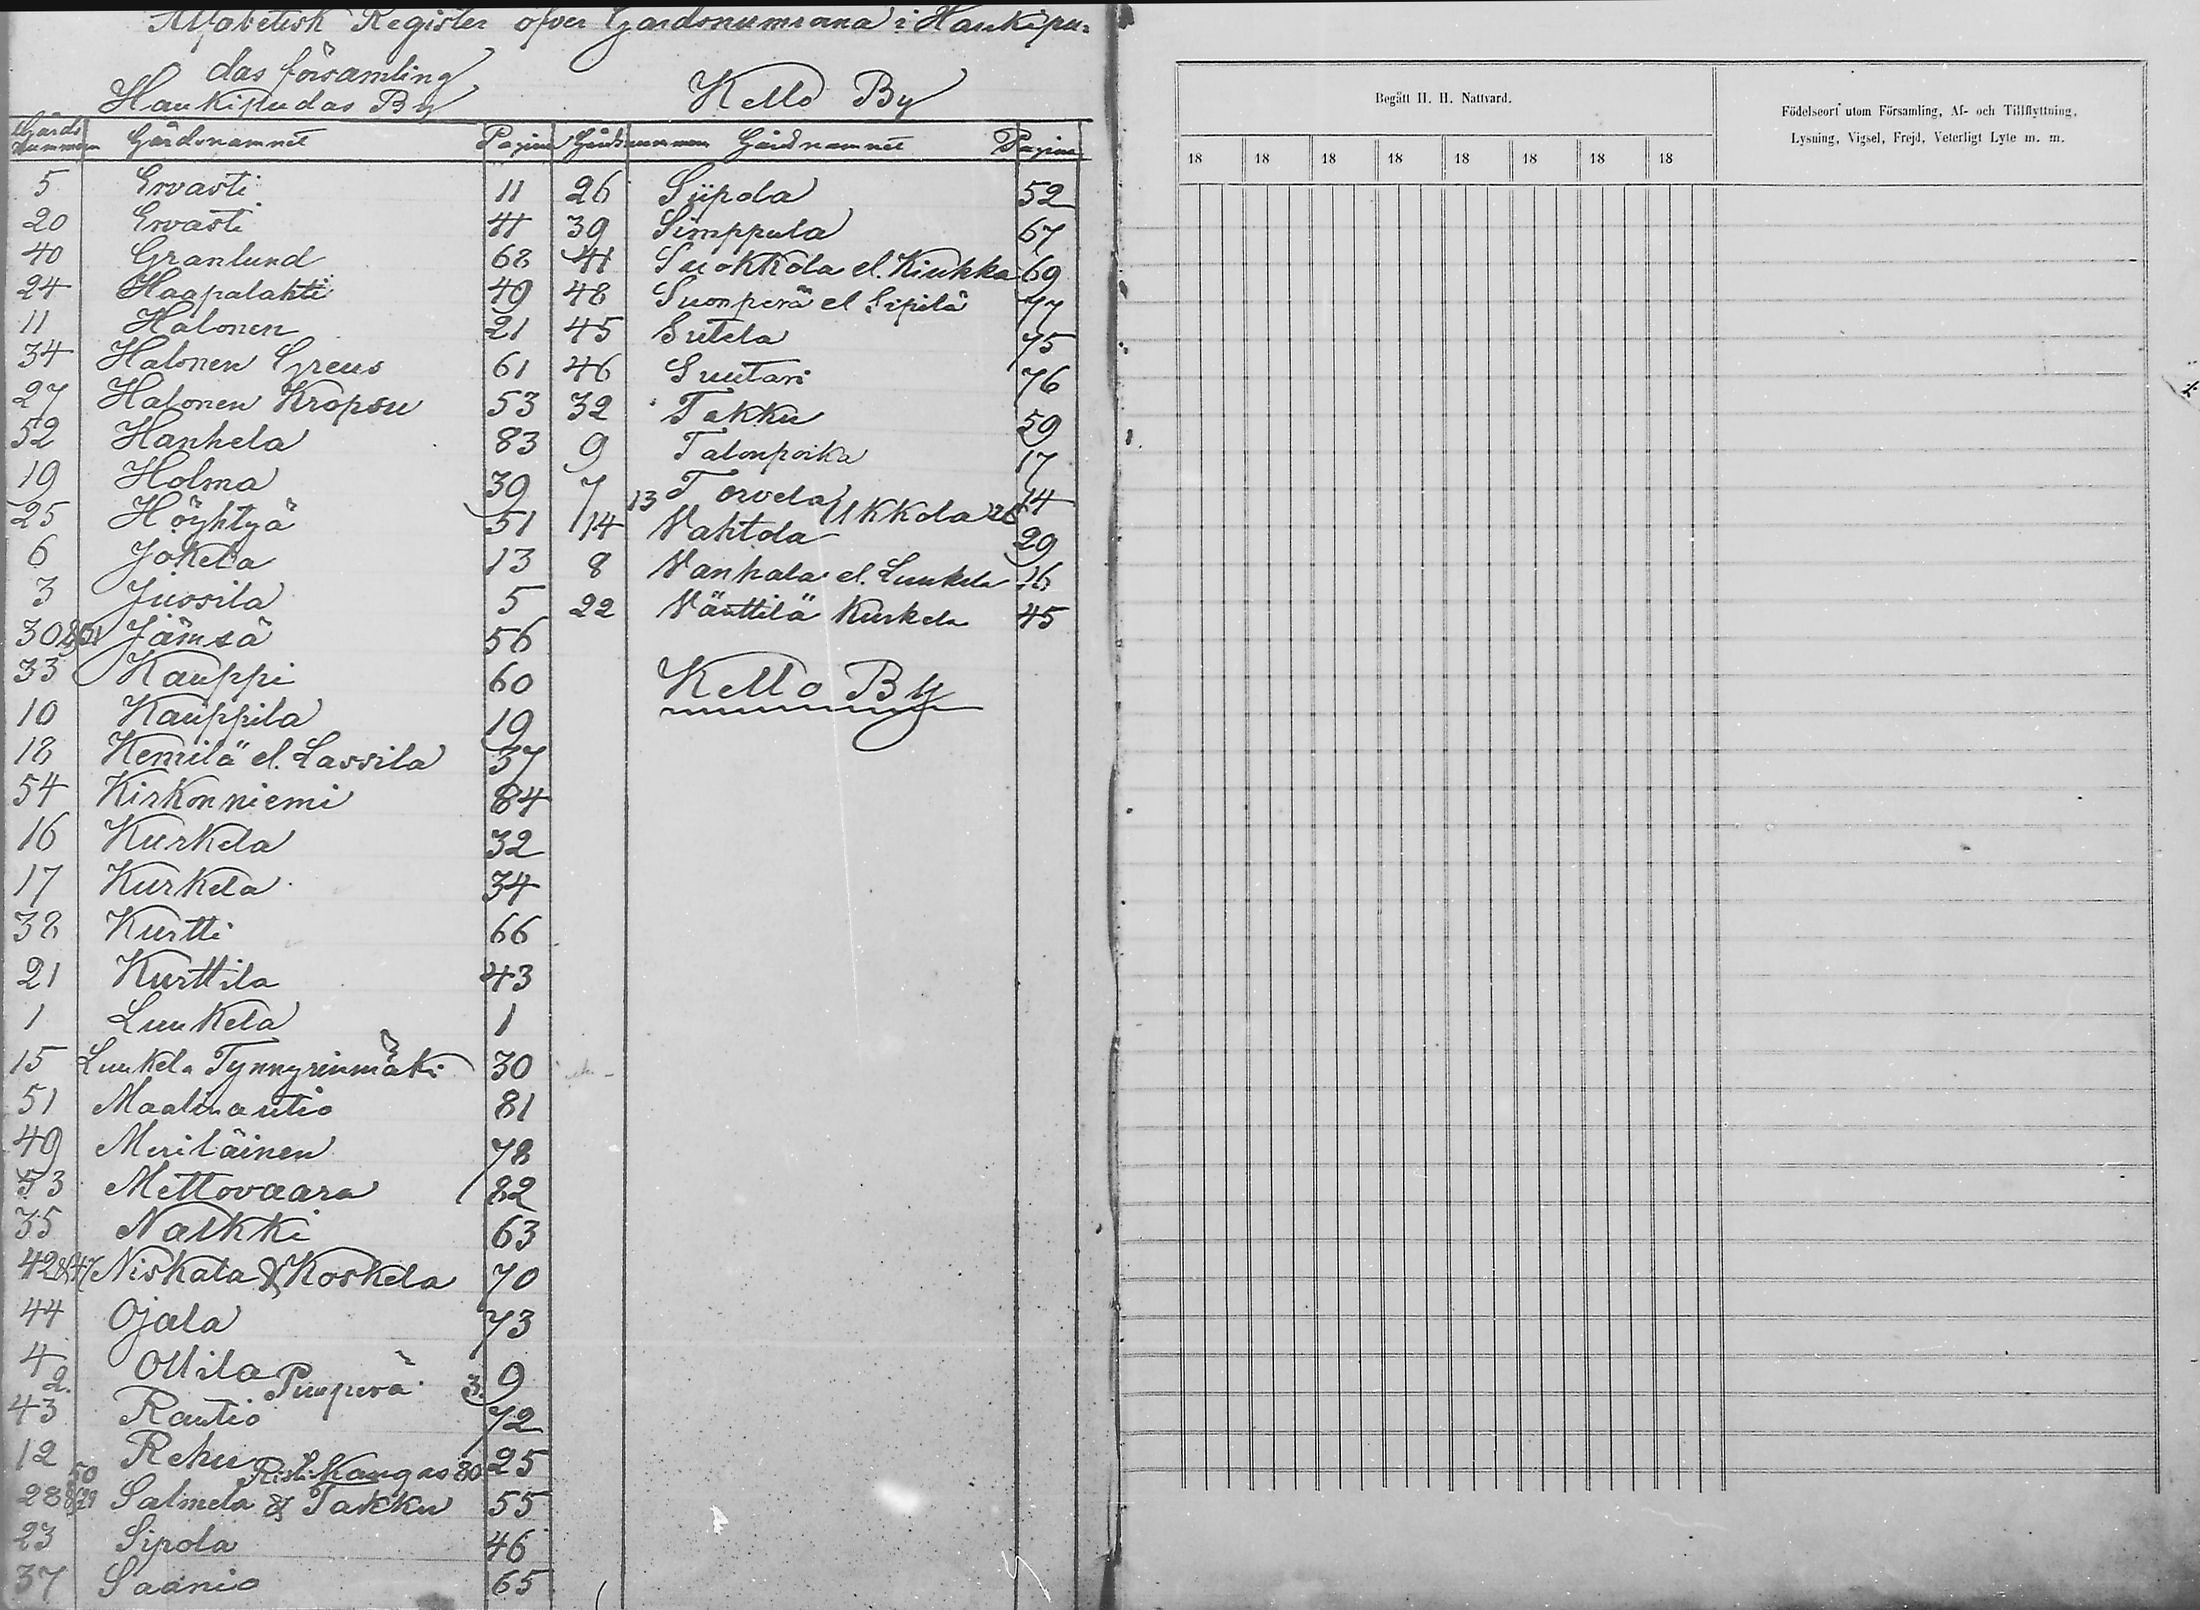 Alfabetisk Register öfver Gårdsnumrana i Haukipu=
das församling
Haukipudas By
Gårds nummern Gårdsnamnet Pagina
5 Ervasti 11
20 Ervasti 41
40 Granlund 68
24 Haapalahti 49
11 Halonen 21
34 Halonen Greus 61
27 Halonen Kropsu 53
52 Hanhela 83
19 Holma 39
25 Höyhtyä 51
6 Jokela 13
3 Juosila 5
30 & 31 Jämsä 56
33 Kauppi 60
10 Kauppila 19
18 Kemilä el. Lassila 37
54 Kirkonniemi 84
16 Kurkela 32
17 Kurkela 34
38 Kurtti 66
21 Kurttila 43
1 Luukela 1
15 Luukela Tynnyrinmäki 30
51 Maalinautio 81
49 Meriläinen 78
53 Mettovaara 82
35 Nalkki 63
42 & 47 Niskala & Koskela 70
44 Ojala 73
4 Ollila 9
2. Puuperä 3.
43 Rautio 72
12 Rehu 25
50 Risti Kangas 80
28 & 29 Salmela & Takku 55
23 Sipola 46
37 Saanio 65
Kello By
Gårdsnummern Gårdnamnet Pagina
26 Siipola 52
39 Simppula 67
41 Suokkola el. Kiukka 69
48 Suonperä el Sipilä 77
45 Sutela 75
46 Suutari 76
32 Takku 59
9 Talonpoika 17
7 Torvela 14
13 Ukkola 28
14 Vahtola 29
8 Vanhala el. Luukela 16
22 Vänttilä Kurkela 45
Kello By
Begått H. H. Nattvard.
Födelseort utom Församling, Af- och Tillflyttning,
Lysning, Vigsel, Frejd, Veterligt Lyte m. m.
18 18 18 18 18 18 18 18